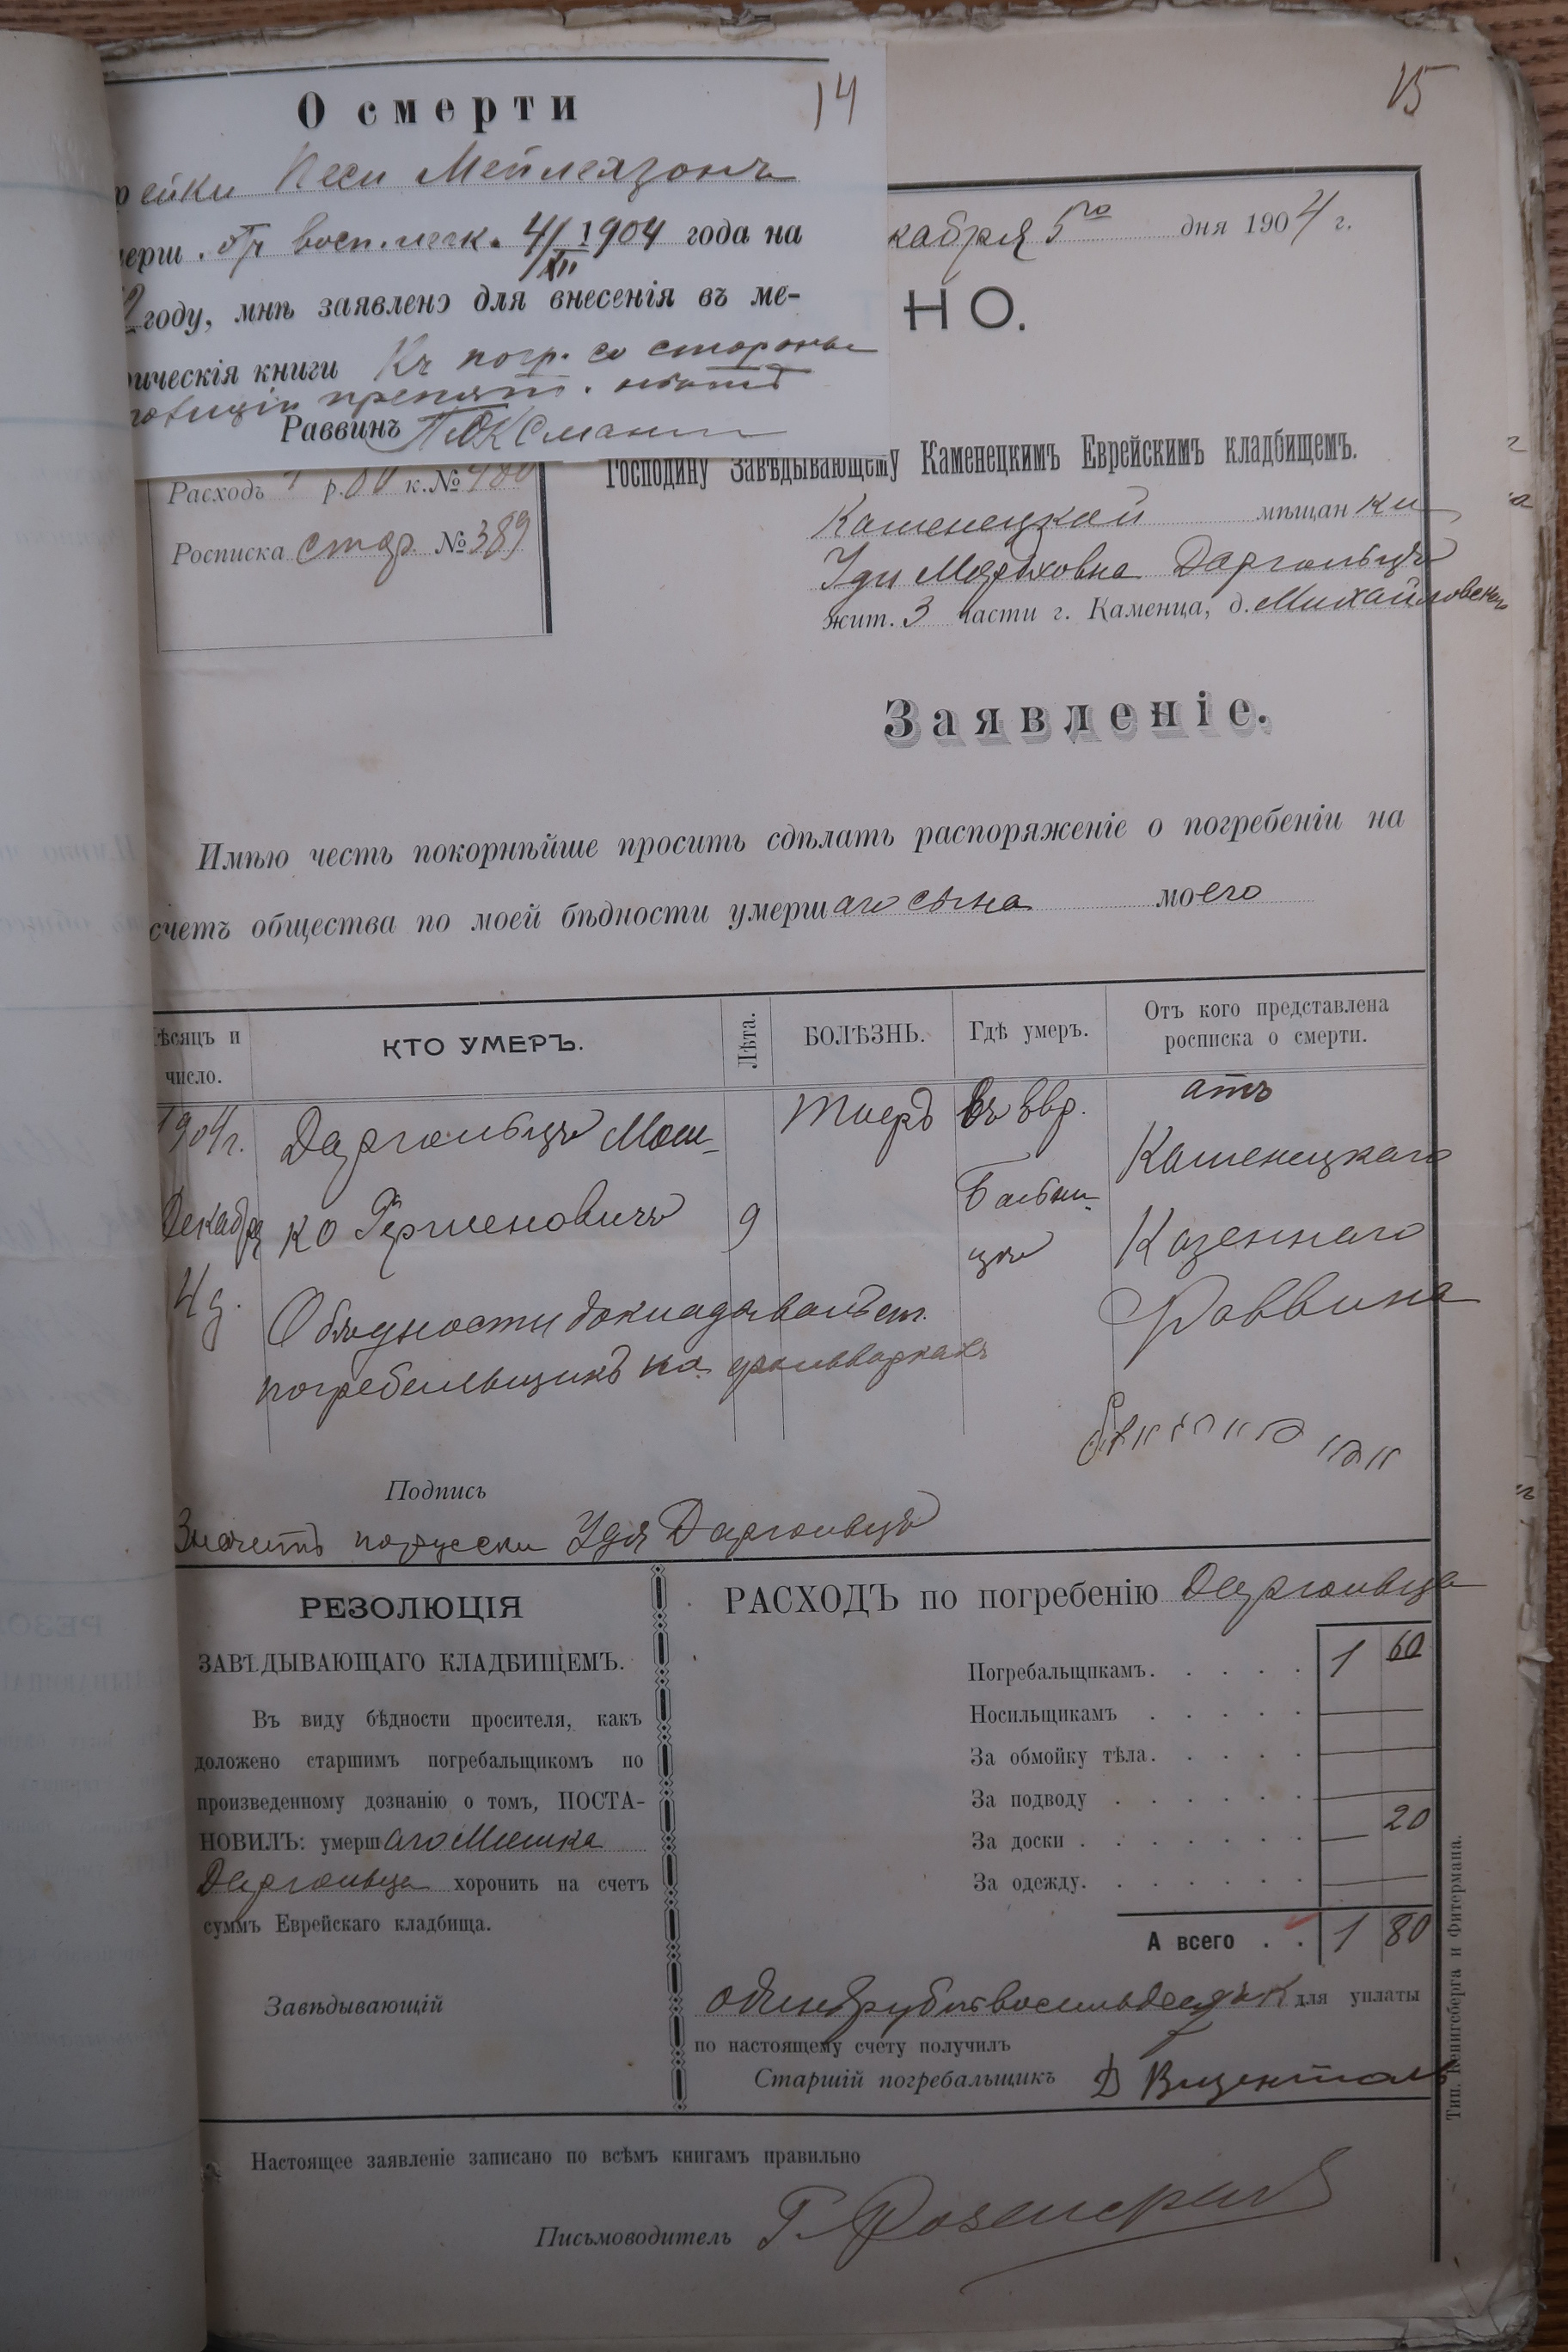 14
15
О смерти
ейки Песи Мейлехзонъ
мерш. отъ восп. легк. 4/XII 1904 года на
году, мнѣ заявлено для внесенія въ ме-
рическія книги Къ погр. со стороны
полиціи препятс. нѣтъ
Раввинъ
кабря 5го дня 1904 г.
НО.
Расходъ 1 р. 80 к. № 480
Росписка стар. № 389
Господину Завѣдывающему Каменецкимъ Еврейскимъ кладбищемъ.
Каменецкой мѣщанки
Уди Мордховна Даргольцъ
жит. 3 части г. Каменца, д. Михайловском
Заявленіе.
Имѣю честь покорнѣйше просить сдѣлать распоряженіе о погребеніи на
счетъ общества по моей бѣдности умершаго сына моего
ѣсяцъ и число.
КТО УМЕРЪ.
Лѣта.
БОЛѢЗНЬ.
Гдѣ умеръ.
Отъ кого представлена росписка о смерти.
1904 г. Даргольцъ Мош- въ Евр. отъ
Каменецкаго
Декабря ко Герменовичъ 9 Больни-
цѣ Казеннаго
4 д. Раввина
О бѣдности докладывалъ ст.
погребальщикъ на фольваркахъ
Подпись
Значитъ по русски Удя Даргольцъ
РЕЗОЛЮЦІЯ
ЗАВѢДЫВАЮЩАГО КЛАДБИЩЕМЪ.
Въ виду бѣдности просителя, какъ
доложено старшимъ погребальщикомъ по
произведенному дознанію о томъ, ПОСТА-
НОВИЛЪ: умершаго Мошка
Даргольца хоронить на счетъ
суммъ Еврейскаго кладбища.
Завѣдывающій
РАСХОДЪ по погребенію Даргольца
Погребальщикамъ. 1 60
Носильщикамъ
За обмойку тѣла.
За подводу
За доски 20
За одежду.
А всего 1 80
одинъ рубль восемьдесятъ к для уплаты
по настоящему счету получилъ
Старшій погребальщикъ Д Виценталь
Тип. Кенигсберга и Фитермана.
Настоящее заявленіе записано по всѣмъ книгамъ правильно
Письмоводитель Г. Розенкранъ